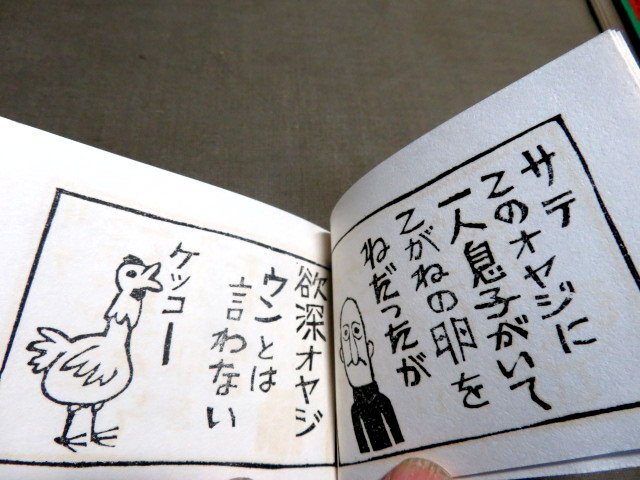 サテ
このオヤジに
一人息子がいて
こがねの卵を
ねだったが
欲深オヤジ
ウンとは
言わない
ケッコー